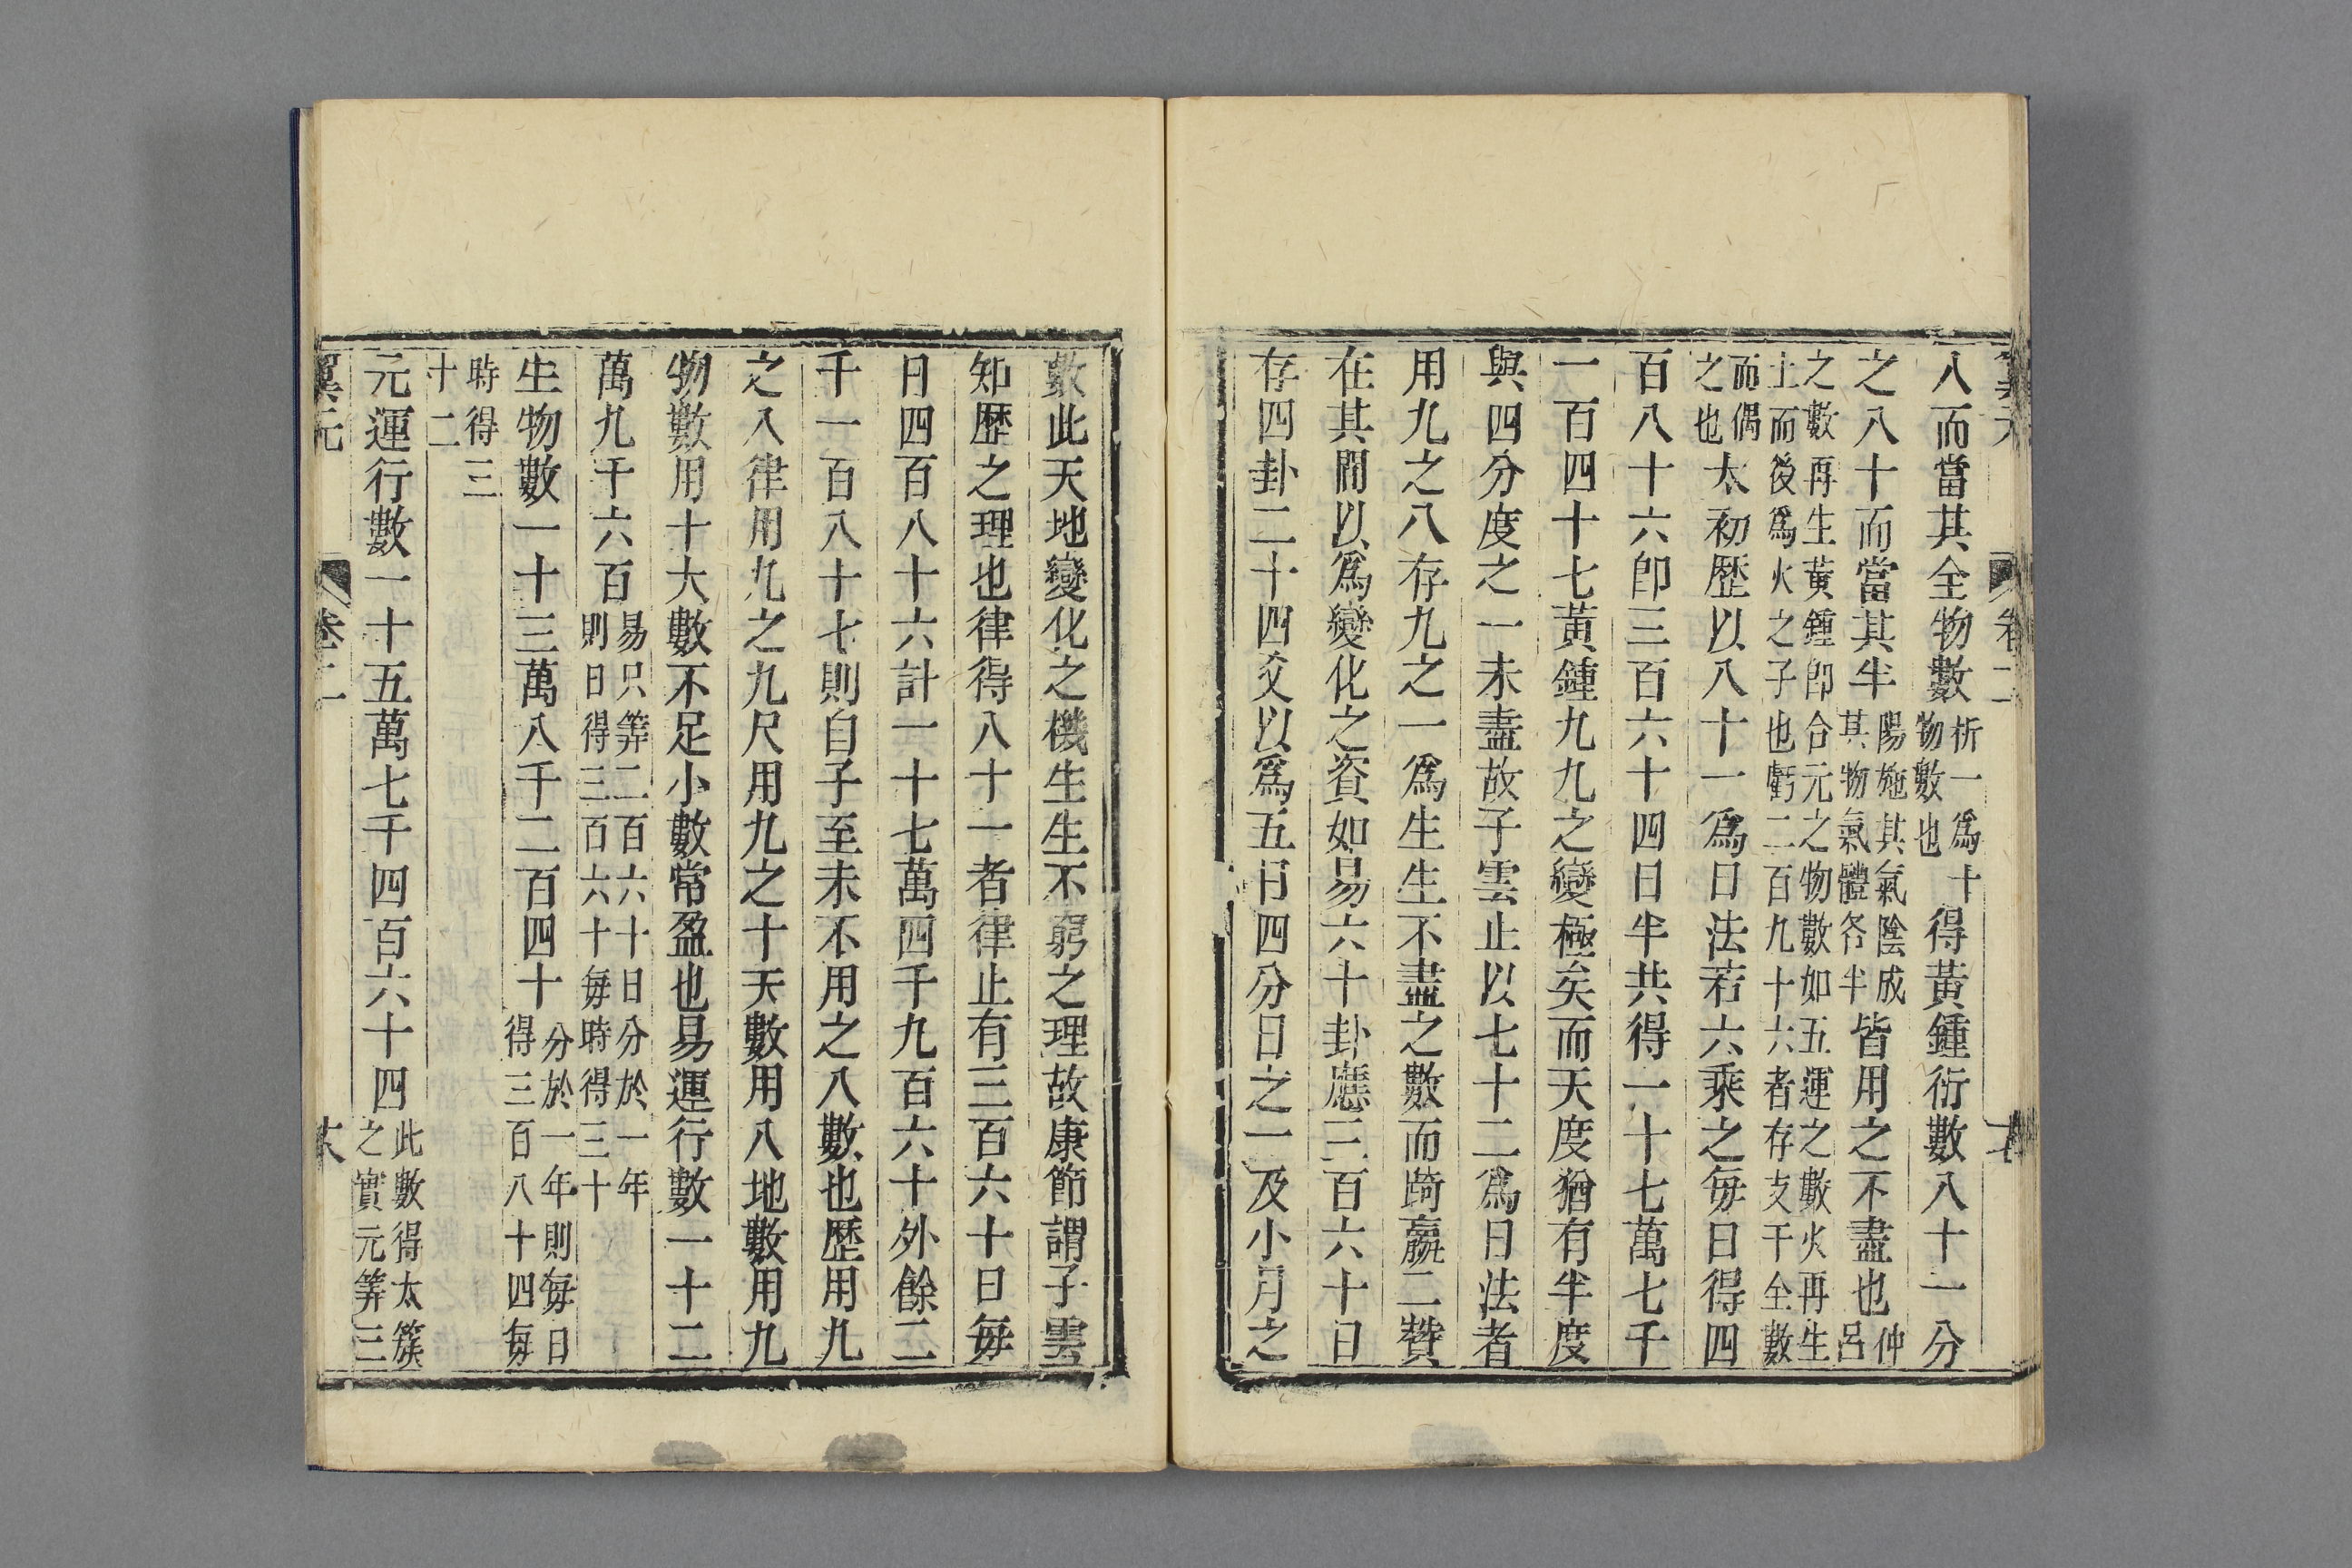 翼元 卷二
八而當其全物數析一爲十物數也得黃鍾衍數八十一分
之八十而當其半陽施其氣陰成其物氣體各半皆用之不盡也仲呂
之數再生黃鍾卽合元之物數如五運之數火再生土而後爲火之子也虧二百九十六者存支干全數
而偶之也太初歷以八十一爲日法若六乘之每日得四
百八十六卽三百六十四日半共得一十七萬七千
一百四十七黃鍾九九之變極矣而天度猶有半度
與四分度之一未盡故子雲止以七十二爲日法者
用九之八存九之一爲生生不盡之數而踦嬴二贊
在其間以爲變化之資如易六十卦應三百六十日
存四卦二十四爻以爲五日四分日之一及小月之
數此天地變化之機生生不窮之理故康節謂子雲
知歷之理也律得八十一者律止有三百六十日每
日四百八十六計一十七萬四千九百六十外餘二
千一百八十七則自子至未不用之八數也歷用九
之八律用九之九尺用九之十天數用八地數用九
物數用十大數不足小數常盈也易運行數一十二
萬九千六百易只筭二百六十日分於一年則日得三百六十每時得三十
生物數一十三萬八千二百四十分於一年則每日得三百八十四每
時得三十二
元運行數一十五萬七千四百六十四此數得太簇之實元筭三
翼元 卷二